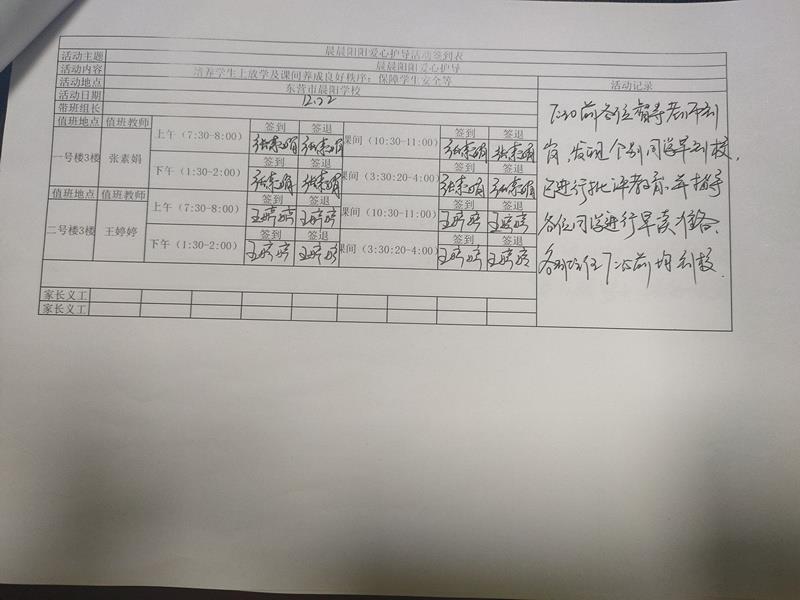 晨晨阳阳爱心护导活动签到表
活动主题 晨晨阳阳爱心护导
活动内容 培养学生上放学及课间养成良好秩序;保障学生安全等
活动地点 东营市晨阳学校 活动记录
活动日期 12.22
带班组长
值班地点 值班教师 上午(7:30-8:00) 签到 签退 课间(10:30-11:00) 签到 签退
张素娟 张素娟 张素娟 张素娟
一号楼3楼 张素娟 下午(1:30-2:00) 签到 签退 课间(3:30:20-4:00) 签到 签退
张素娟 张素娟 张素娟 张素娟
值班地点 值班教师 上午(7:30-8:00) 签到 签退 课间(10:30-11:00) 签到 签退
王婷婷 王婷婷 王婷婷 王婷婷
二号楼3楼 王婷婷 下午(1:30-2:00) 签到 签退 课间(3:30:20-4:00) 签到 签退
王婷婷 王婷婷 王婷婷 王婷婷
7:30前各位督导老师到
岗,发现个别同学早到校,
已进行批评教育.并指导
各位同学进行早读准备.
各班班任7:25前均到校.
家长义工
家长义工